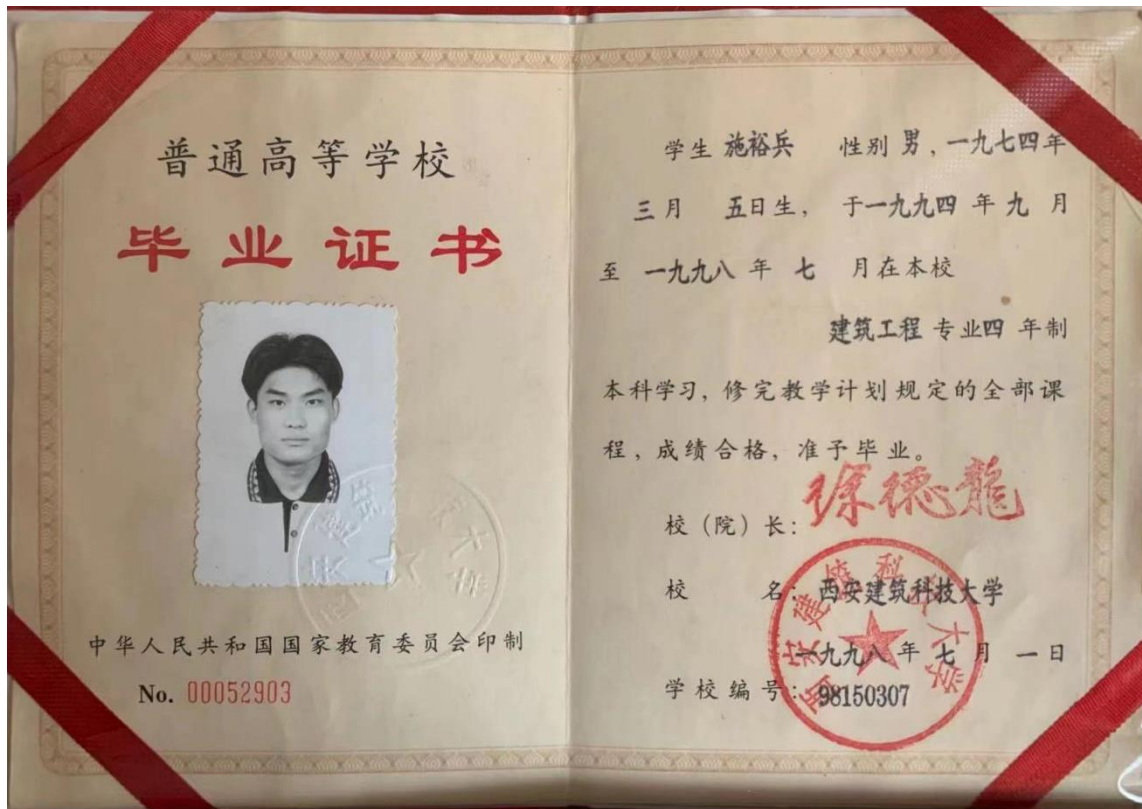 普通高等学校
毕业证书
中华人民共和国国家教育委员会印制
No. 00052903
学生 施裕兵 性别 男，一九七四年
三月 五日生，于一九九四年九月
至 一九九八年 七 月在本校
建筑工程 专业四 年制
本科学习，修完教学计划规定的全部课
程，成绩合格，准予毕业。
校（院）长：徐德龍
校 名：西安建筑科技大学
一九九八年七月一日
学校编号：98150307
西安建筑科技大学